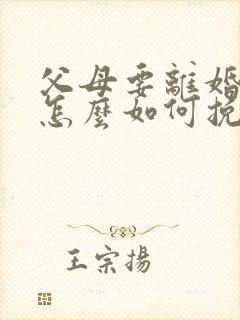 父母要離婚
怎麼如何挽
王宗揚